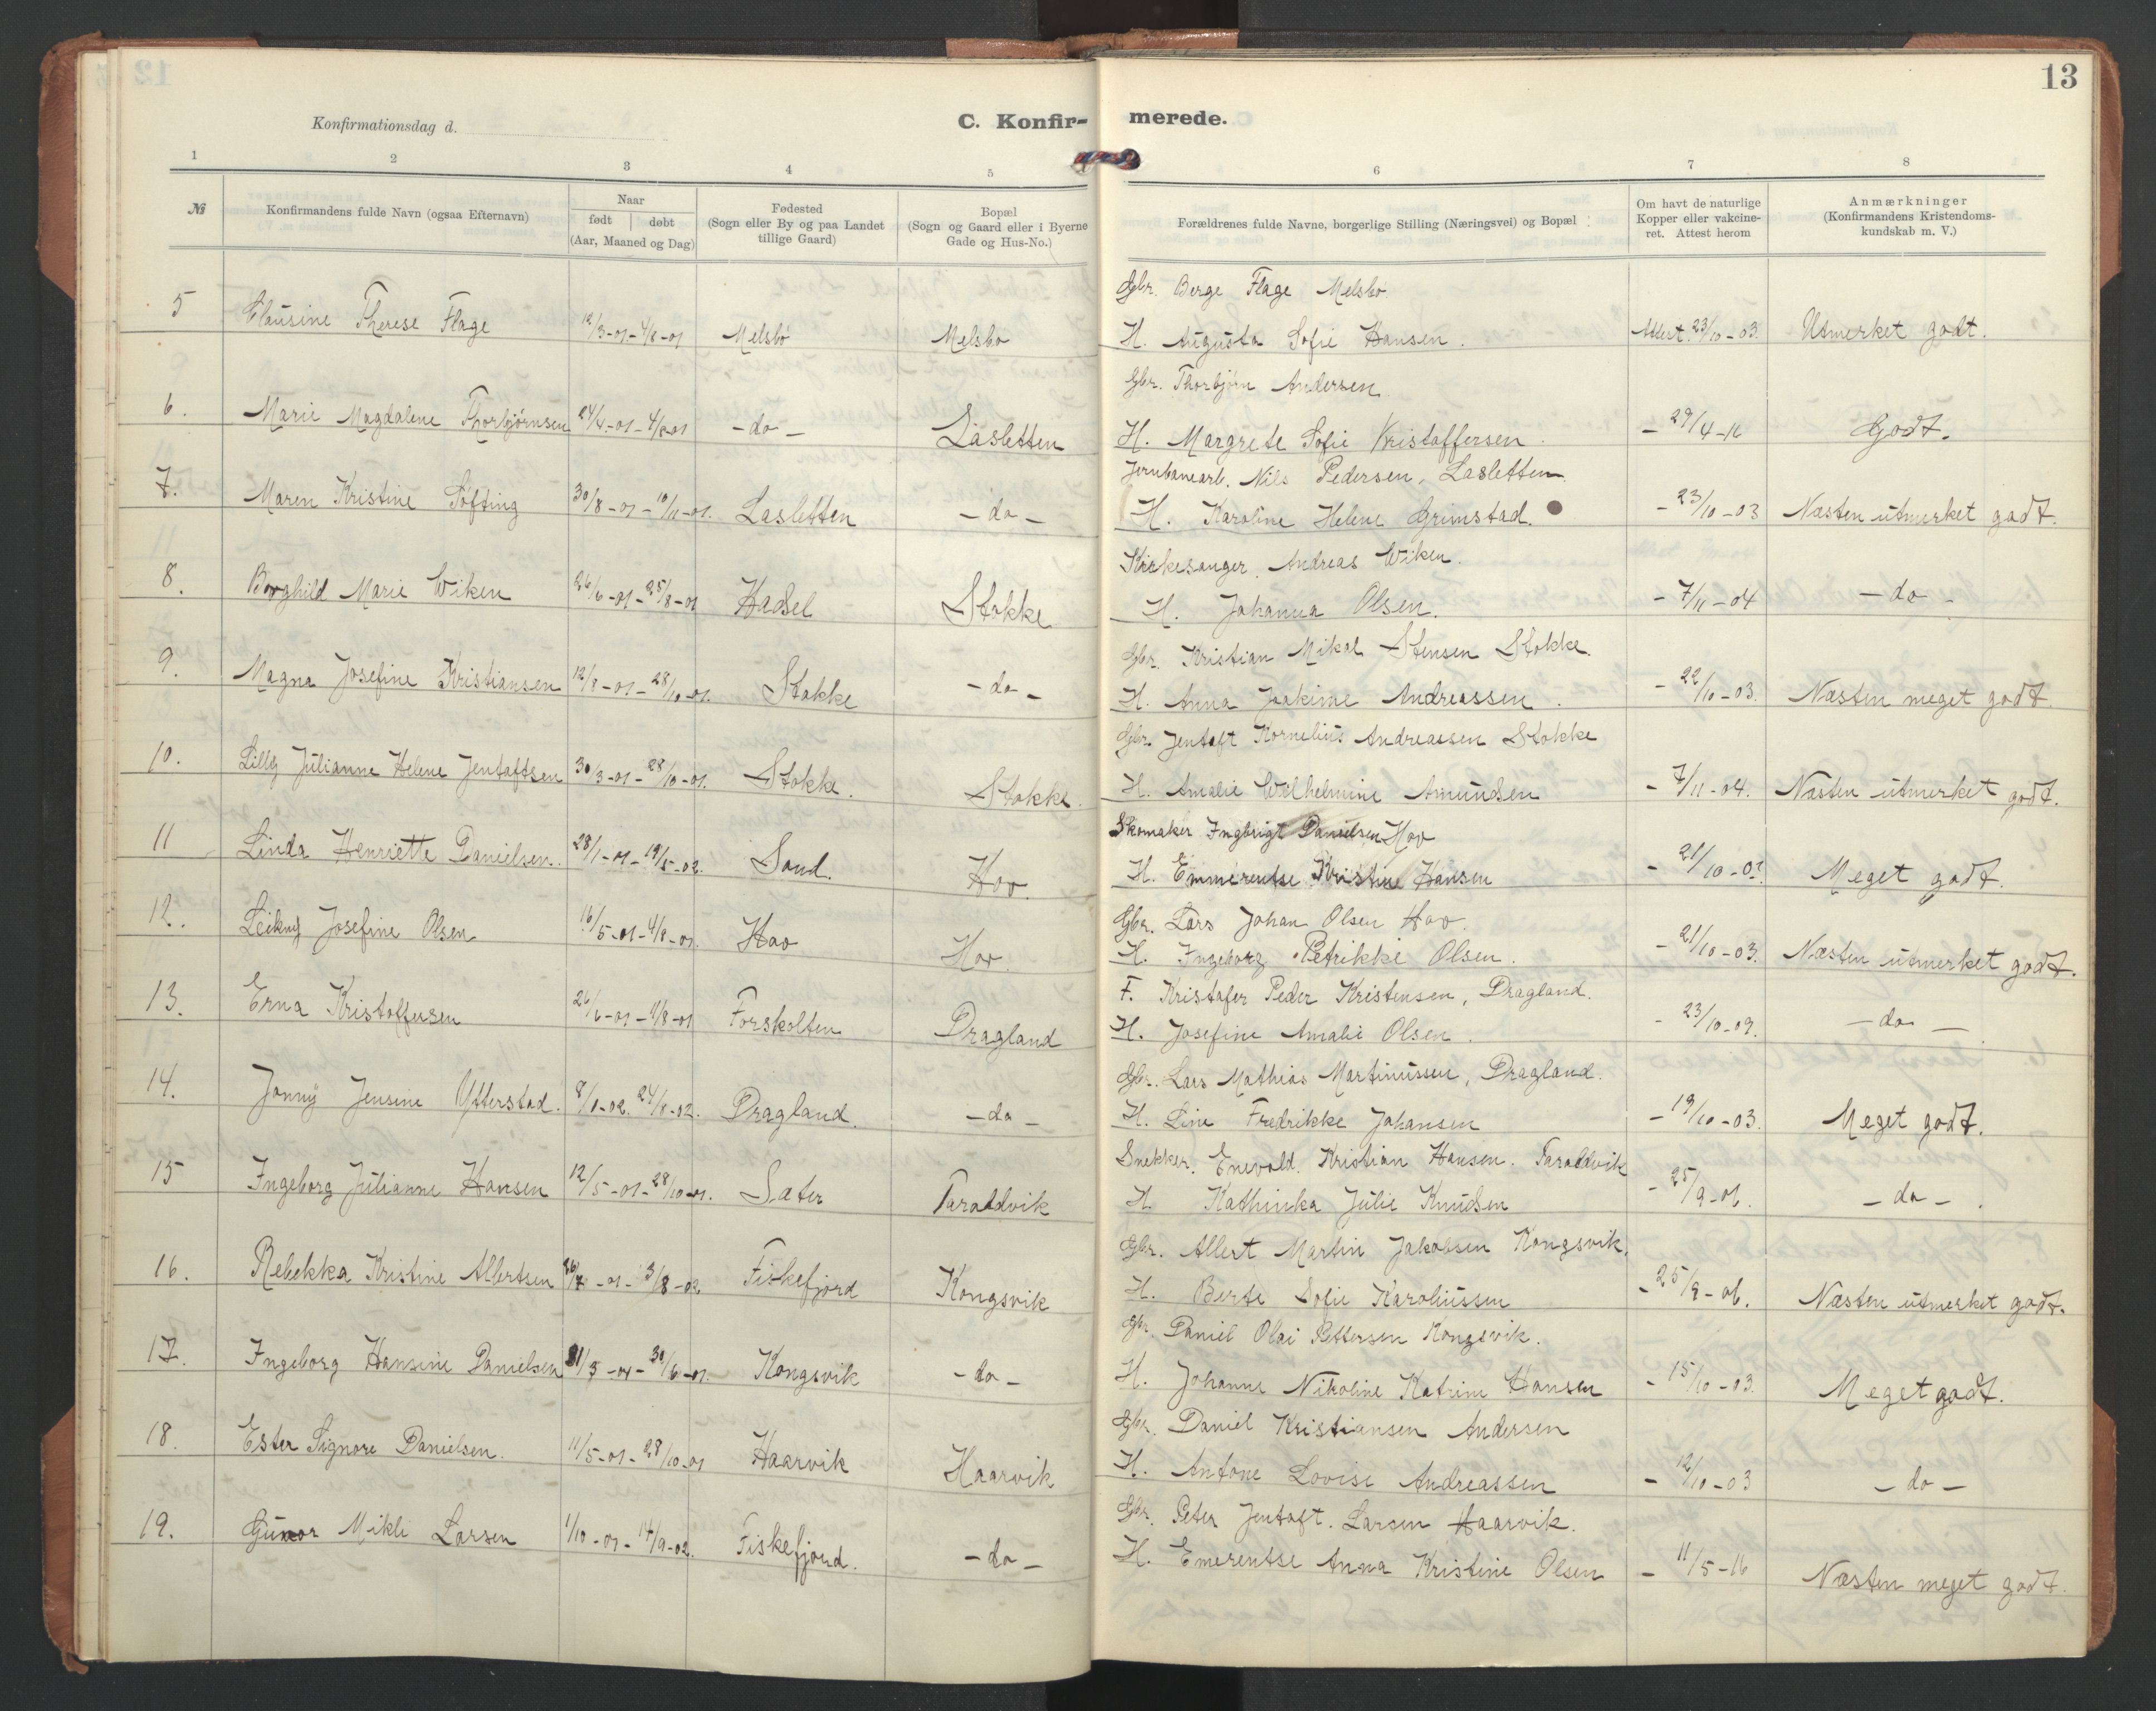 13
Konfirmationsdag d.
C. Konfir- merede.
1 2 3 4 5 6 7 8
№ Konfirmandens fulde Navn (ogsaa Efternavn) Naar født døbt (Aar, Maaned og Dag) Fødested (Sogn eller By og paa Landet tillige Gaard) Bopæl (Sogn og Gaard eller i Byerne Gade og Hus-No.) Forældrenes fulde Navne, borgerlige Stilling (Næringsvei) og Bopæl Om havt de naturlige Kopper eller vakcineret. Attest herom Anmærkninger (Konfirmandens Kristendomskundskab m. V.)
Gbr. Berge Flage Melsbo
5 Clausine Therese Flage 12/3-01-4/8-01 Melsbö Melsbo H. Augusta Sofie Hansen. Attest. 23/10-03. Utmerket godt.
Gbr. Thorbjörn Andersen
6. Marie Magdalene Thorbjörnsen 24/4-01-4/8-01 -do- Lasletten H. Margrete Sofie Kristoffersen - 29/4-16 Godt.
Jernbanearb. Nils Pedersen, Lasletten
7. Maren Kristine Søfting 30/8-01-10/11-01. Lasletten -do- H. Karoline Helene Grimstad. - 23/10-03 Næsten utmerket godt.
Kirkesanger. Andreas Wiken.
8. Borghild Marie Wiken 26/6-01-25/8-01 Hadsel Stokke H. Johanna Olsen. - 7/11-04 -do-
Gbr. Kristian Mikal Stensen Stokke.
9. Magna Josefine Kristiansen 12/8-01-28/10-01. Stokke -do- H. Anna Joakime Andreassen. - 22/10-03. Næsten meget godt.
Gbr. Jentoft Kornelius Andreassen Stokke
10. Lilly Julianne Helene Jentoftsen 30/3-01-28/10-01. Stokke. Stokke. H. Amalie Wilhelmine Amundsen - 7/11-04. Næsten utmerket godt.
Skomaker Ingbrigt Danielsen Hov
11 Linda Henriette Danielsen. 28/1-01-19/5-02. Sand. Hov. H. Emmerentse Kristine Hansen - 21/10-03. Meget godt.
Gbr. Lars Johan Olsen Hov.
12. Leikny Josefine Olsen 16/5-01-4/8-01. Hov Hov. H. Ingeborg Petrikke Olsen. - 21/10-03. Næsten utmerket godt.
F. Kristofer Peder Kristensen, Dragland.
13. Erna Kristoffersen 26/6-01-4/8-01 Forskolten Dragland H. Josefine Amalie Olsen. - 23/10-09. -do-
Gbr. Lars Mathias Martinussen, Dragland.
14. Jonny Jensine Ytterstad. 8/1-02. 24/8-02. Dragland. -do- H. Line Fredrikke Johansen - 19/10-03. Meget godt.
Snekker. Enevold. Kristian Hansen. Taraldvik
15 Ingeborg Julianne Hansen 12/5-01-28/10-01. Sæter Taraldvik H. Kathinka Julie Knudsen - 25/9-06. -do-.
Gbr. Albert Martin Jakobsen Kongsvik.
16. Rebekka Kristine Albertsen -01-3/8-02. Fiskefjord Kongsvik H. Berte Sofie Karoliussen - 25/9-06. Næsten utmerket godt.
Gbr. Daniel Olai Pettersen Kongsvik.
17. Ingeborg Hansine Danielsen 31/3-01-30/6-01. Kongsvik -do- H. Johanne Nikoline Katrine Hansen - 15/10-03. Meget godt.
Gbr. Daniel Kristiansen Andersen
18. Ester Signore Danielsen. 11/5-01-28/10-01 Haarvik Haarvik H. Antone Lovise Andreassen - 12/10-03 -do-
Gbr. Peter Jentoft. Larsen Haarvik.
19. Gunor Mikli Larsen 1/10-01-14/9-02. Fiskefjord. -do- H. Emerentse Anna Kristine Olsen - 11/5-16 Næsten meget godt.